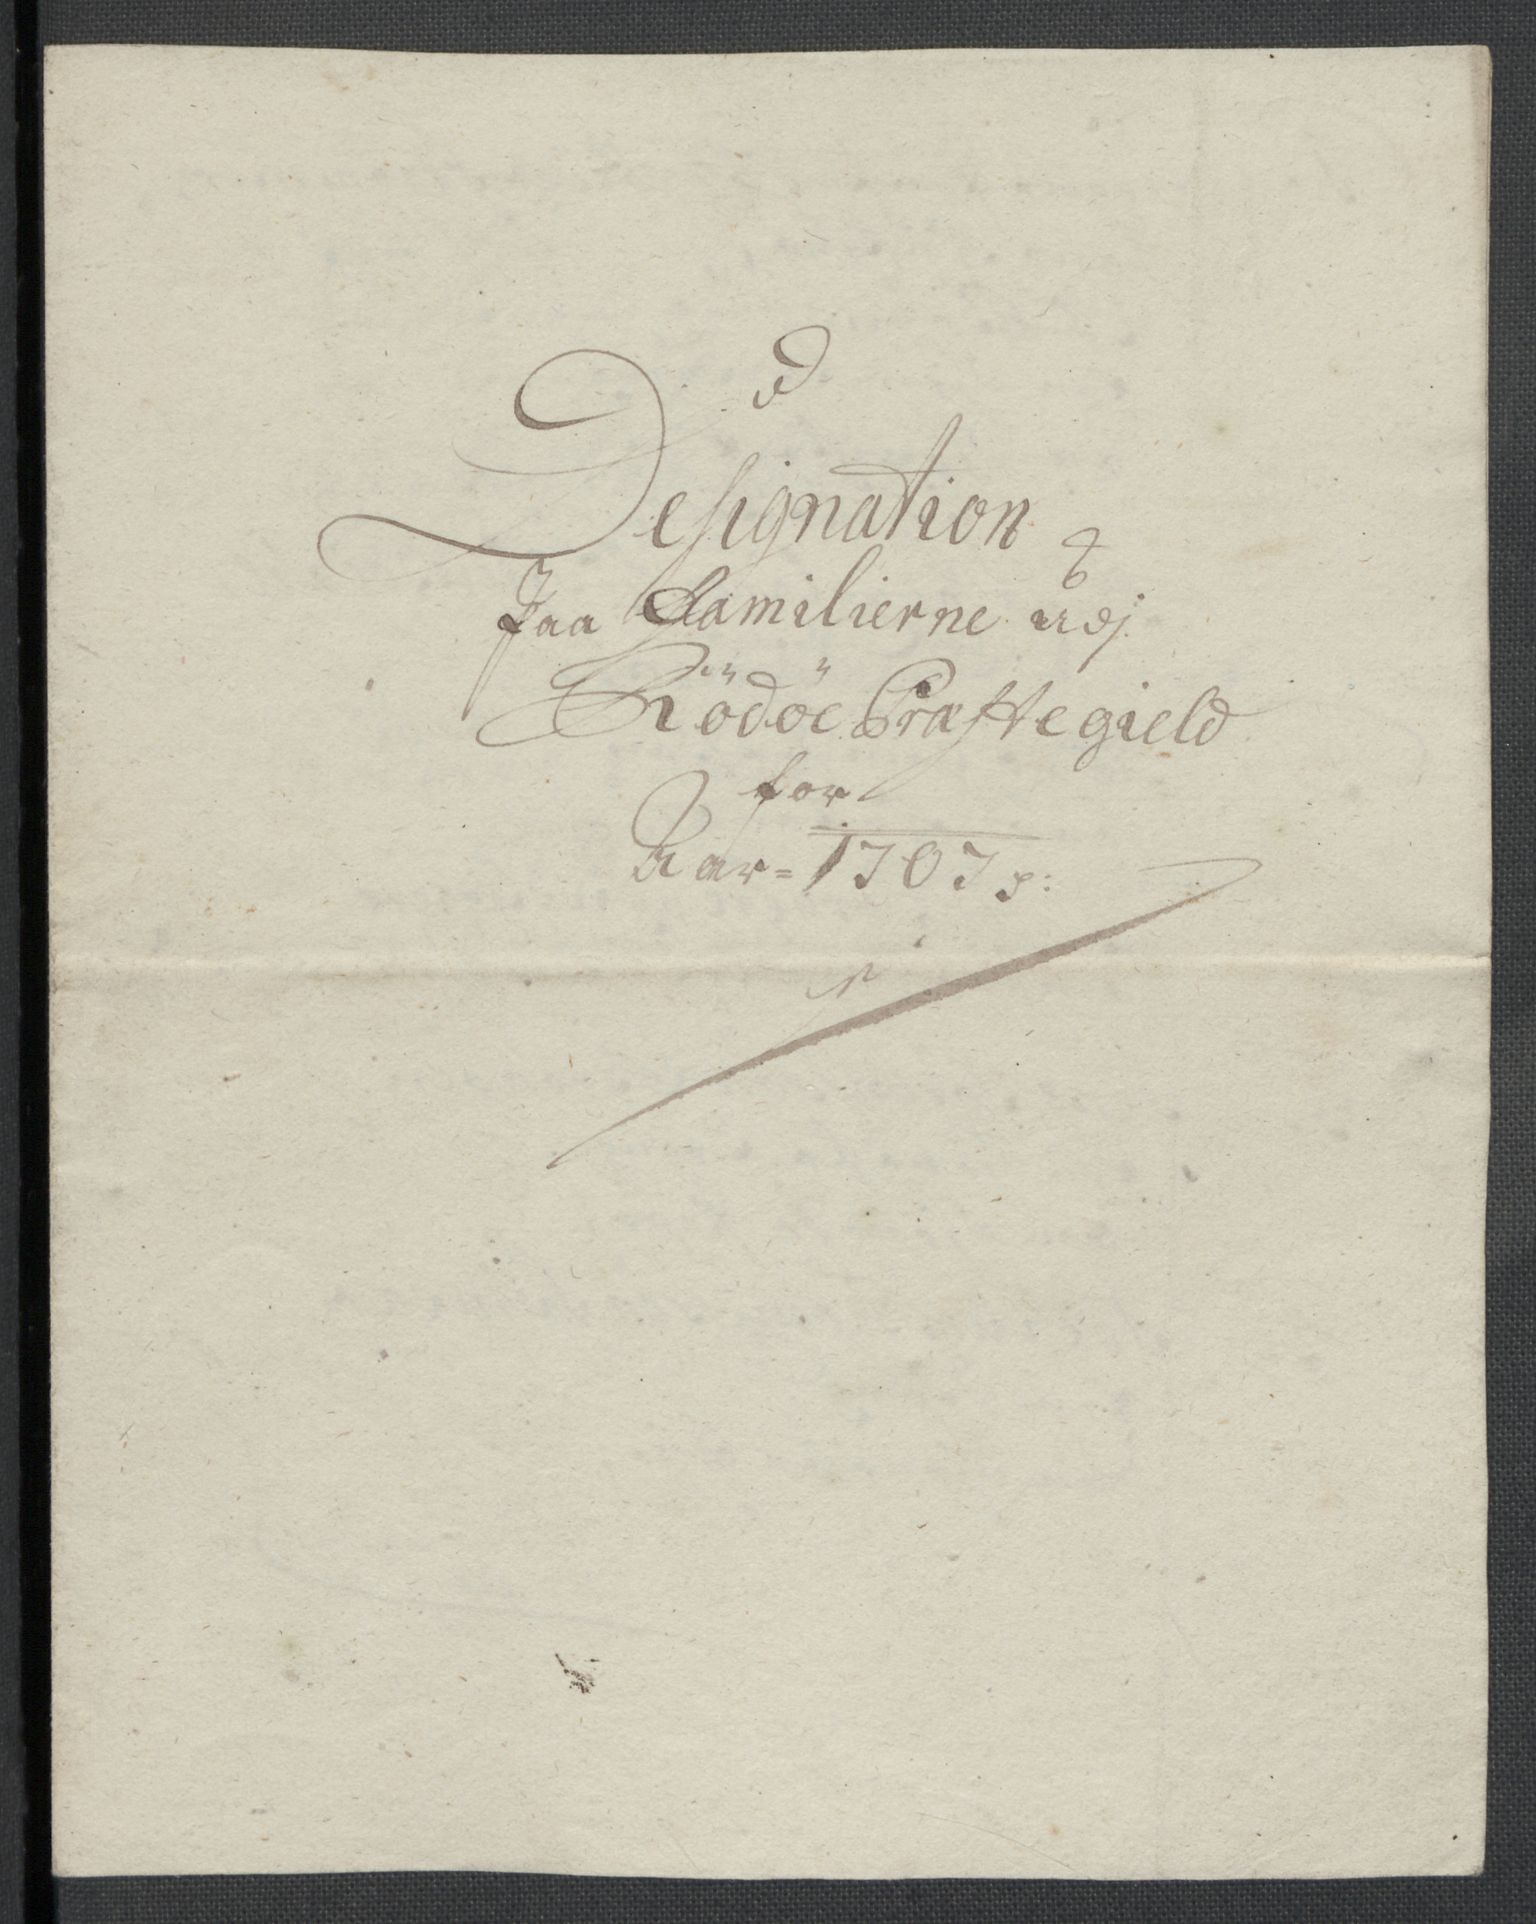 Designation
paa Familierne udj
Rödöe Præstegield
for
Aar = 1707